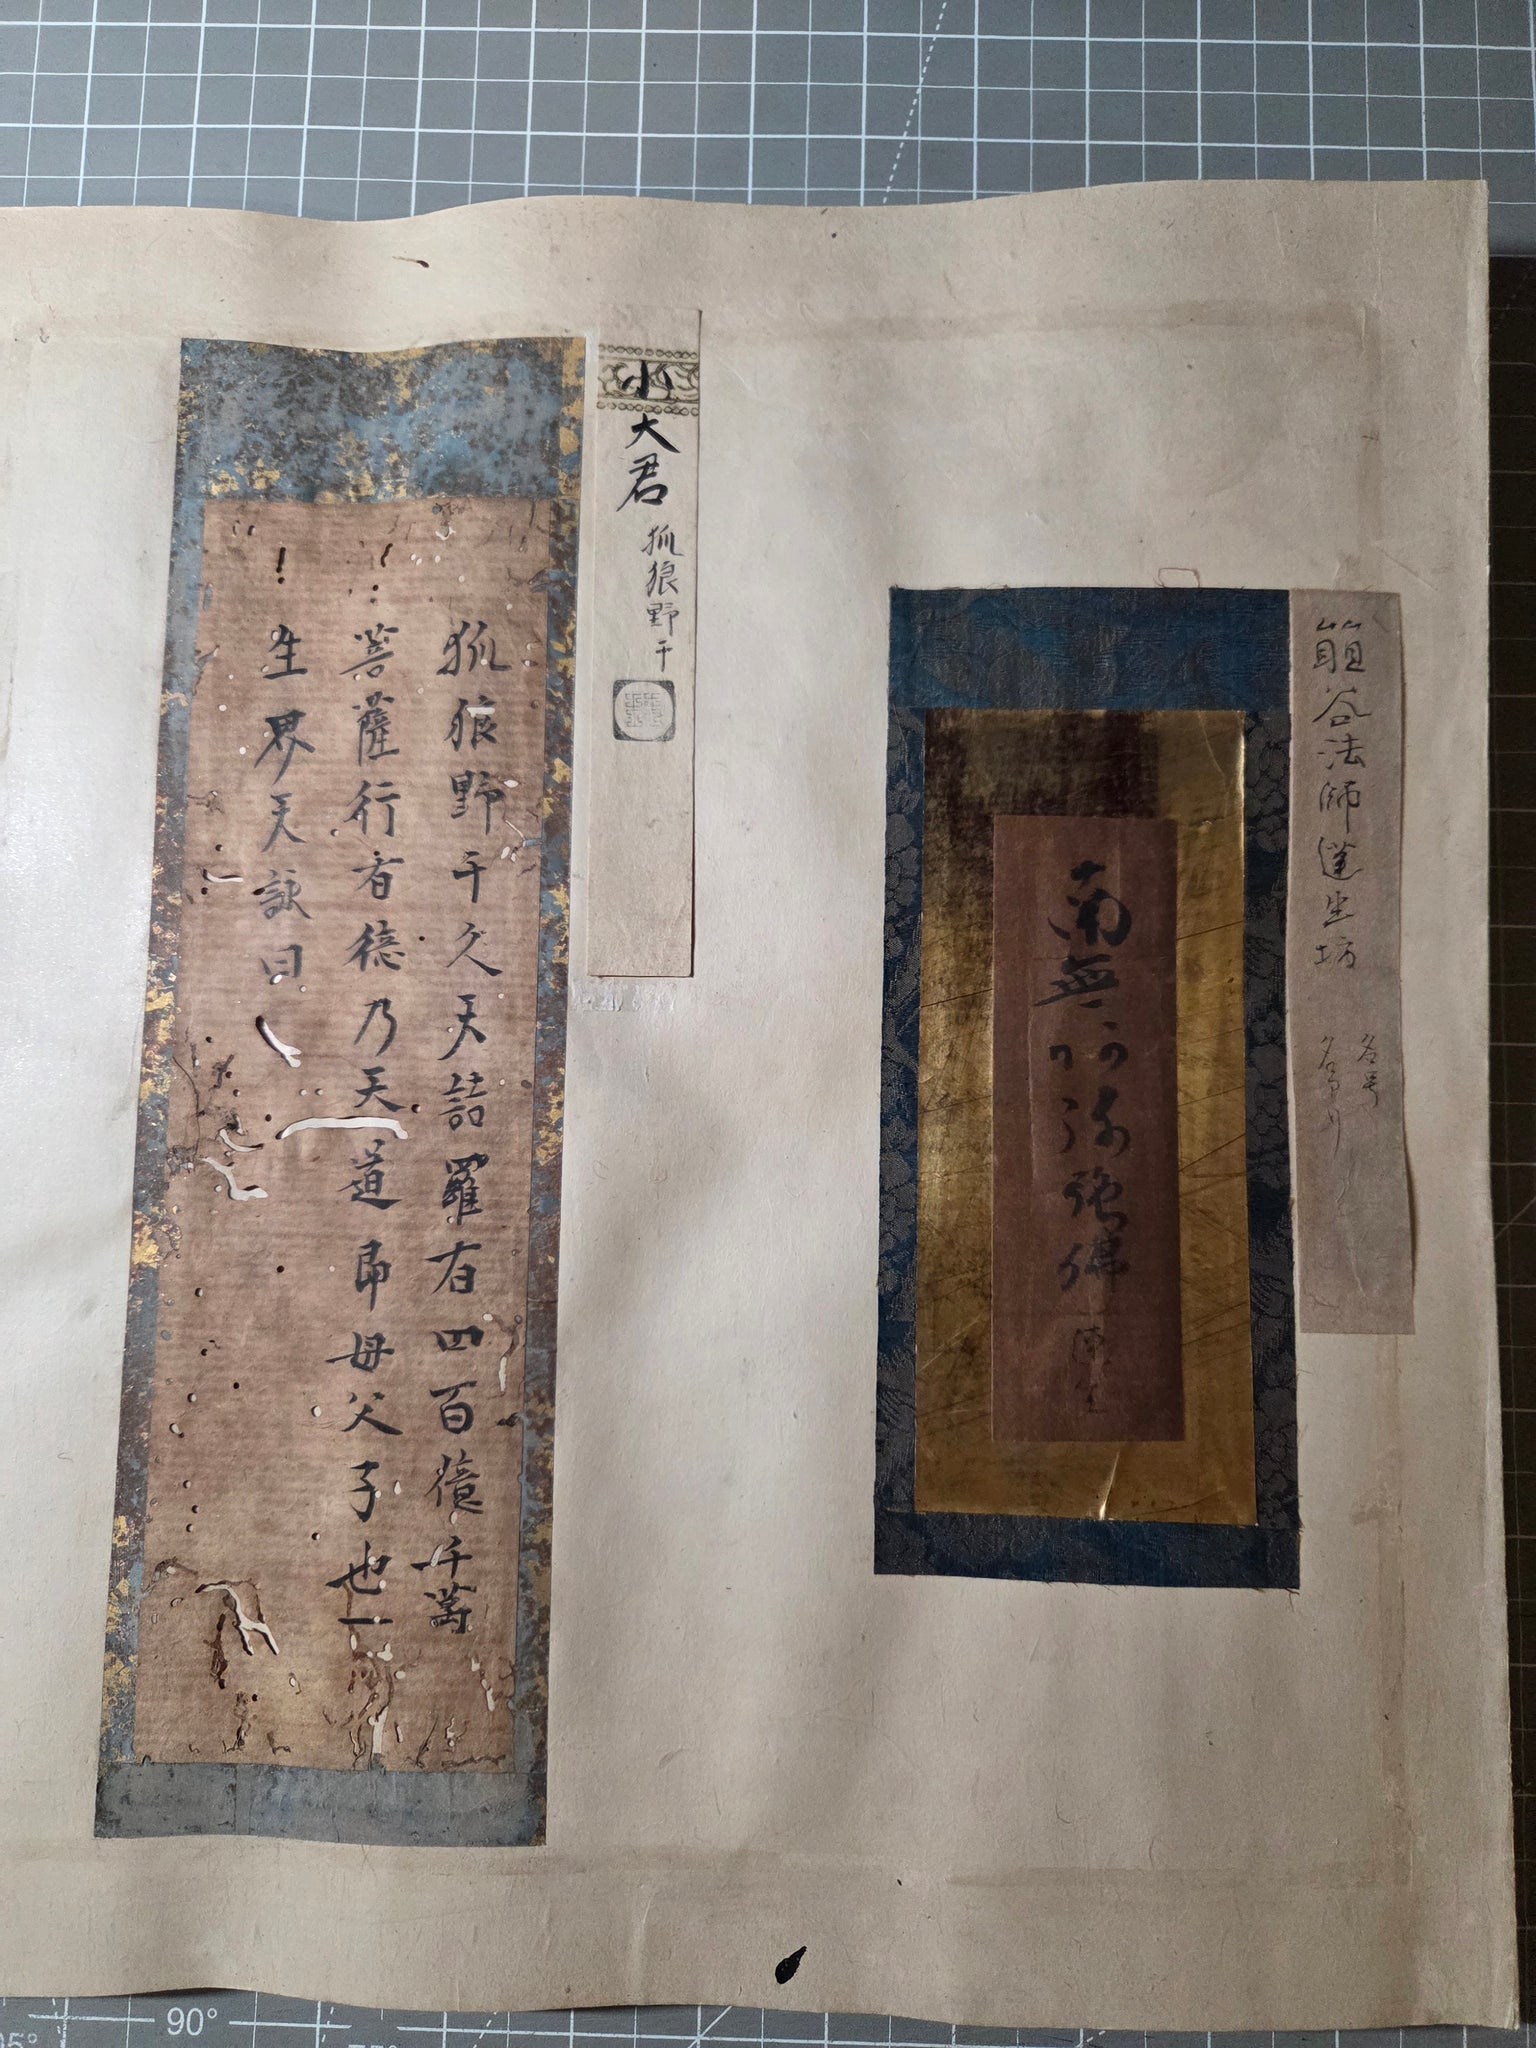 法師蓮生坊
名号
南無阿弥陀佛
蓮生
小大君 狐狼野干
狐狼野干久天詰羅有四百億千萬
菩薩行者德乃天道即母父子也一
生界天詠曰
90°